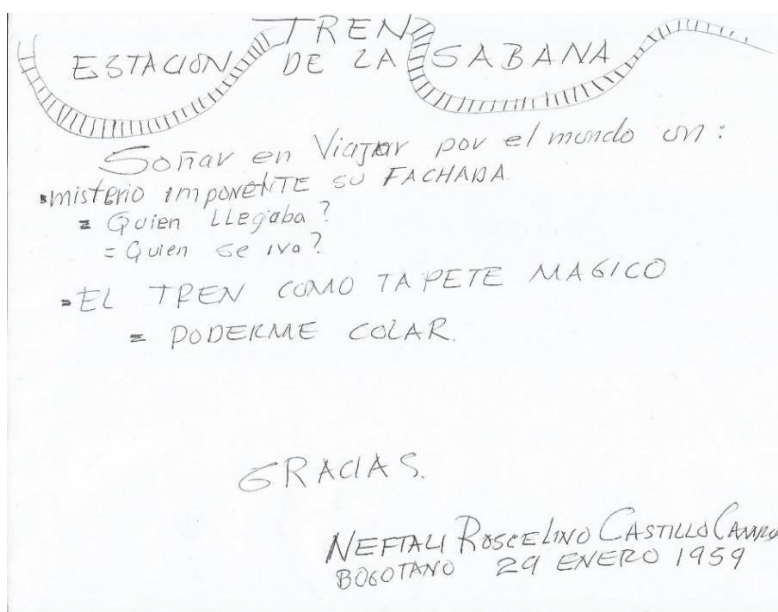 ESTACION TREN DE LA SABANA
Soñar en Viajar por el mundo un:
misterio imponente su FACHADA
= Quien LLegaba?
= Quien se iva?
=EL TREN COMO TAPETE MAGICO
= PODERME COLAR.
GRACIAS.
NEFTALI ROSCELINO CASTILLO
BOGOTANO 29 ENERO 1959